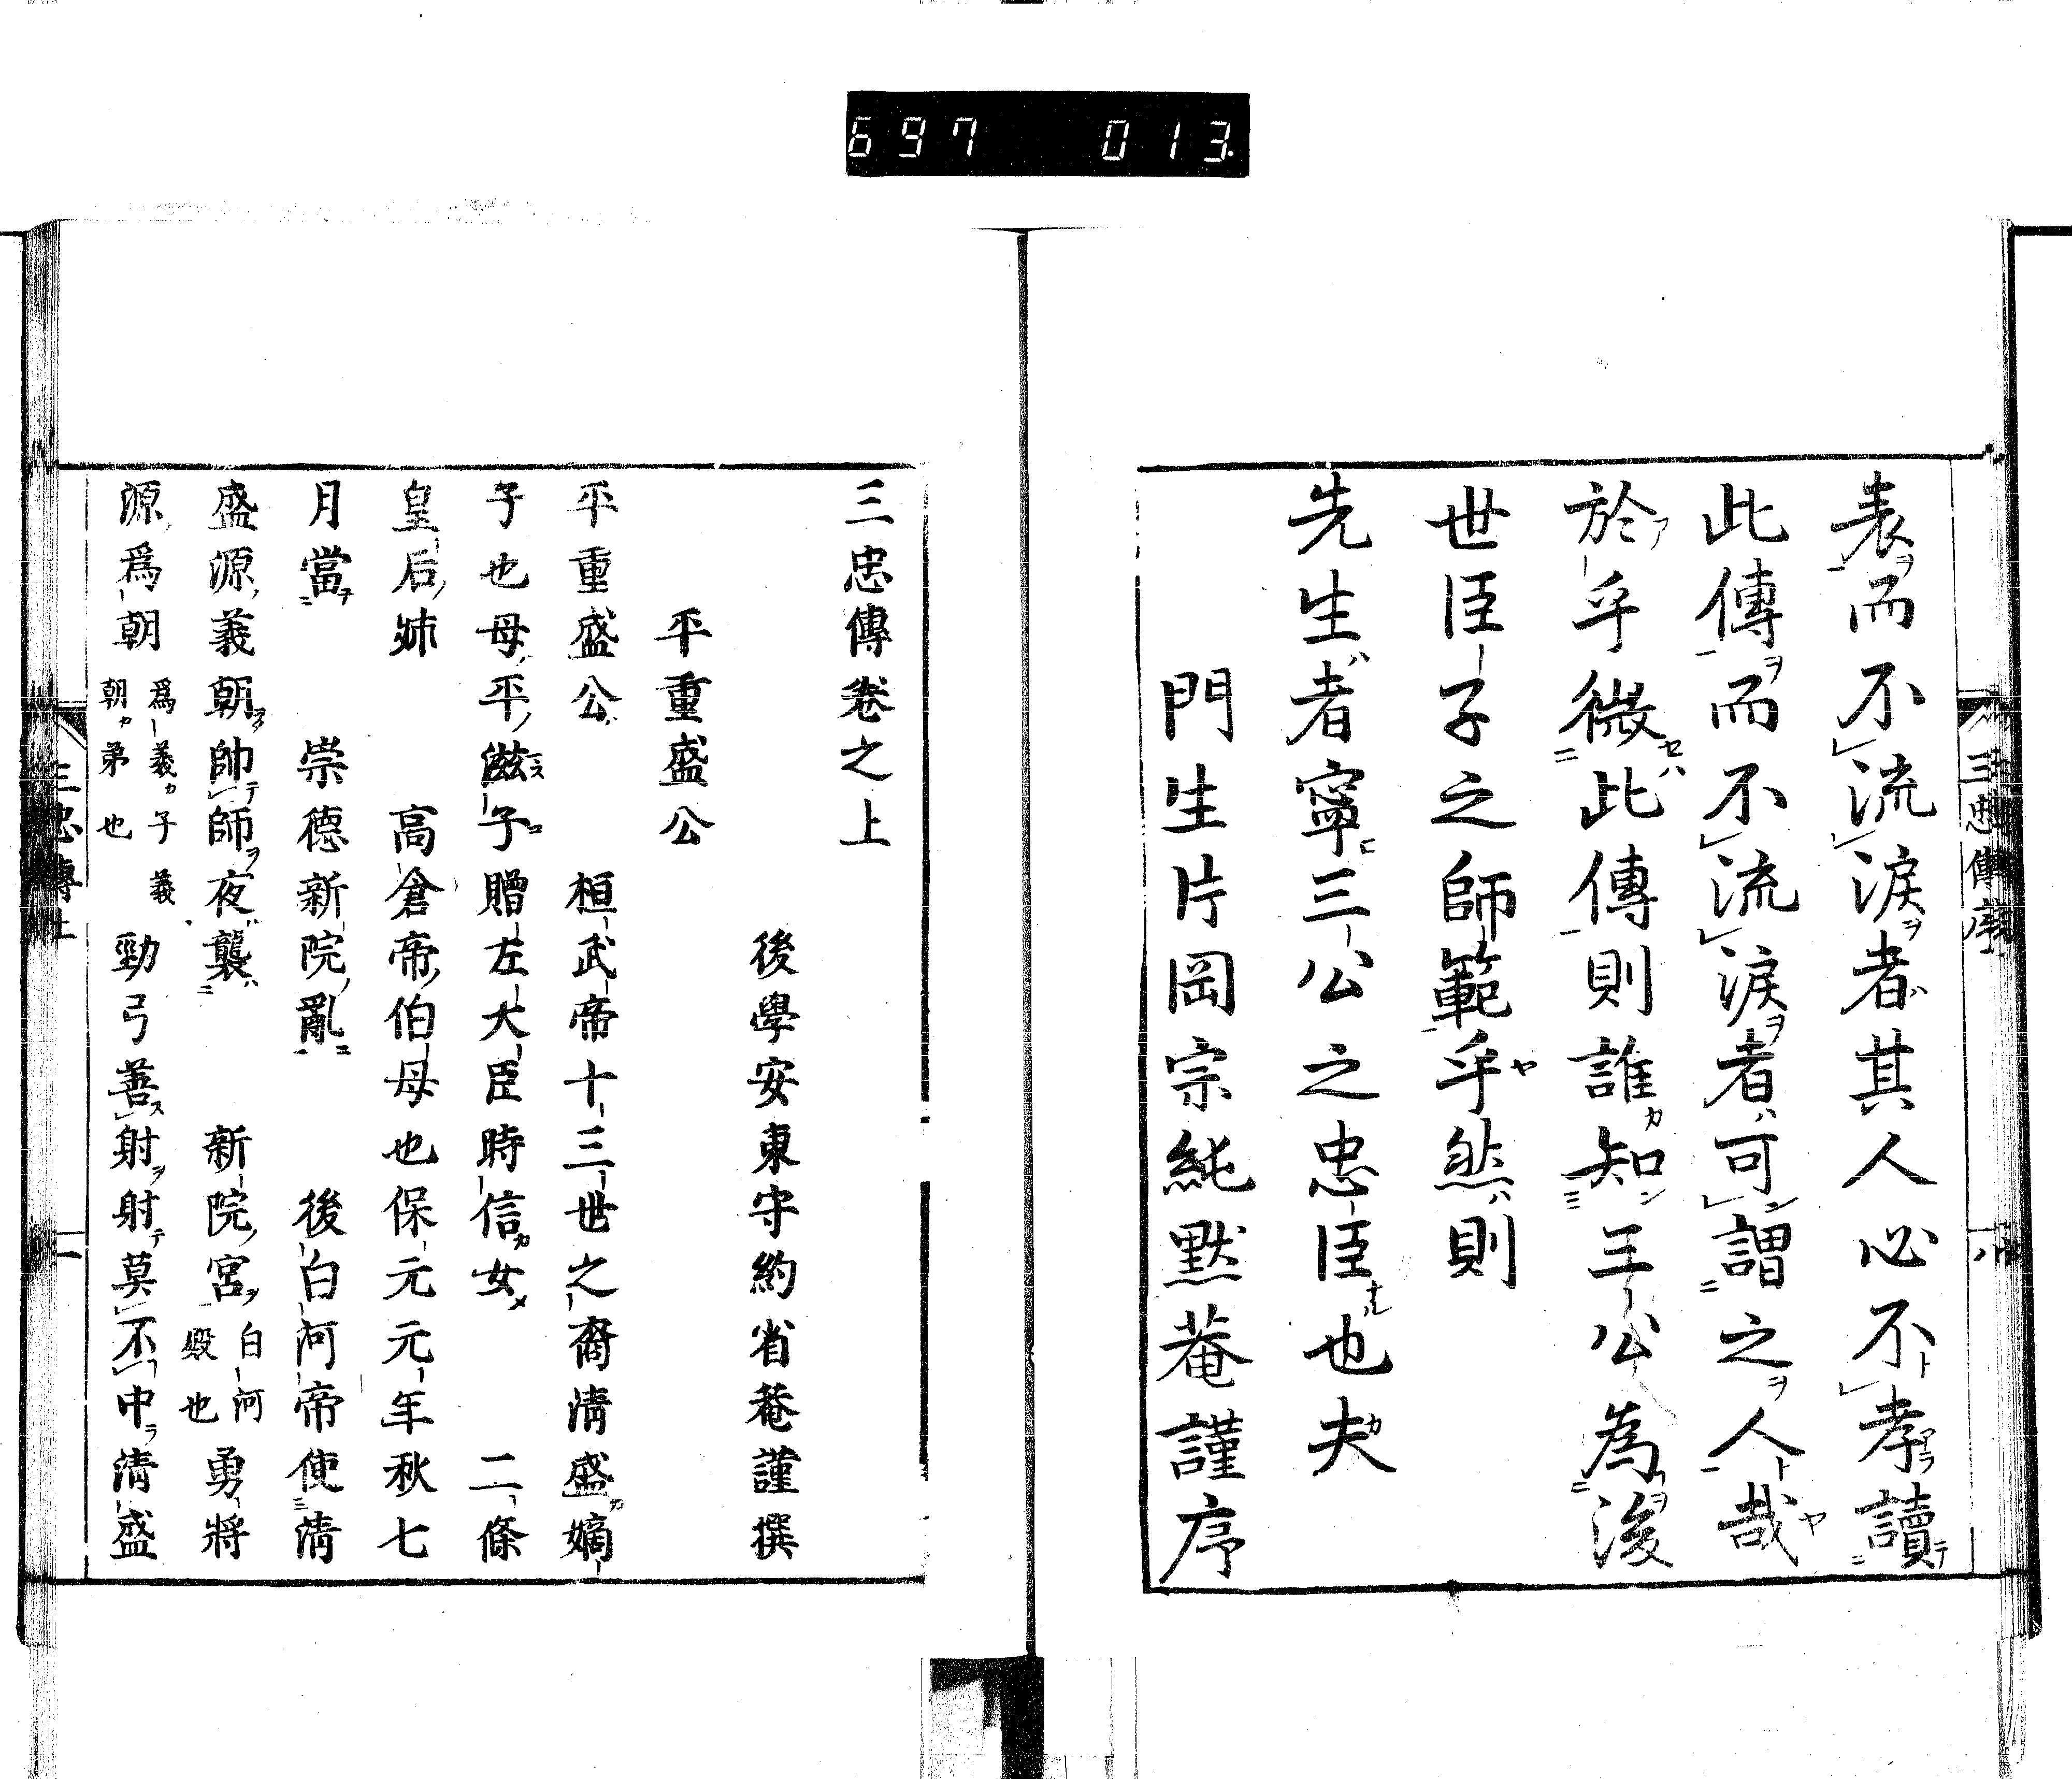 697 013
三忠傳序
表而不流淚者其人必不孝讀
此傳而不流淚者可謂之人哉
於乎微此傳則誰知三公為後
世臣子之師範乎然則
先生者寧三公之忠臣也夫
門生片岡宗純默菴謹序
三忠傳卷之上
後學安東守約省菴謹撰
平重盛公
平重盛公 桓武帝十三世之裔清盛嫡
子也母平滋子贈左大臣時信女 二條
皇后姉 高倉帝伯母也保元元年秋七
月當 崇德新院亂 後白河帝使清
盛源義朝帥師夜襲 新院宮白河殿也勇將
源為朝為義子義朝弟也勁弓善射射莫不中清盛
三忠傳上 一